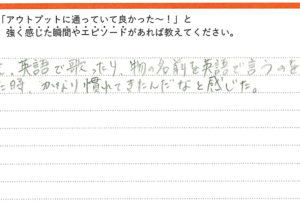 「アウトプットに通っていて良かった～！」と
強く感じた瞬間やエピソードがあれば教えてください。
、英語で歌ったり、物の名前を英語で言うのを
た時、かなり慣れてきたんだなと感じた。